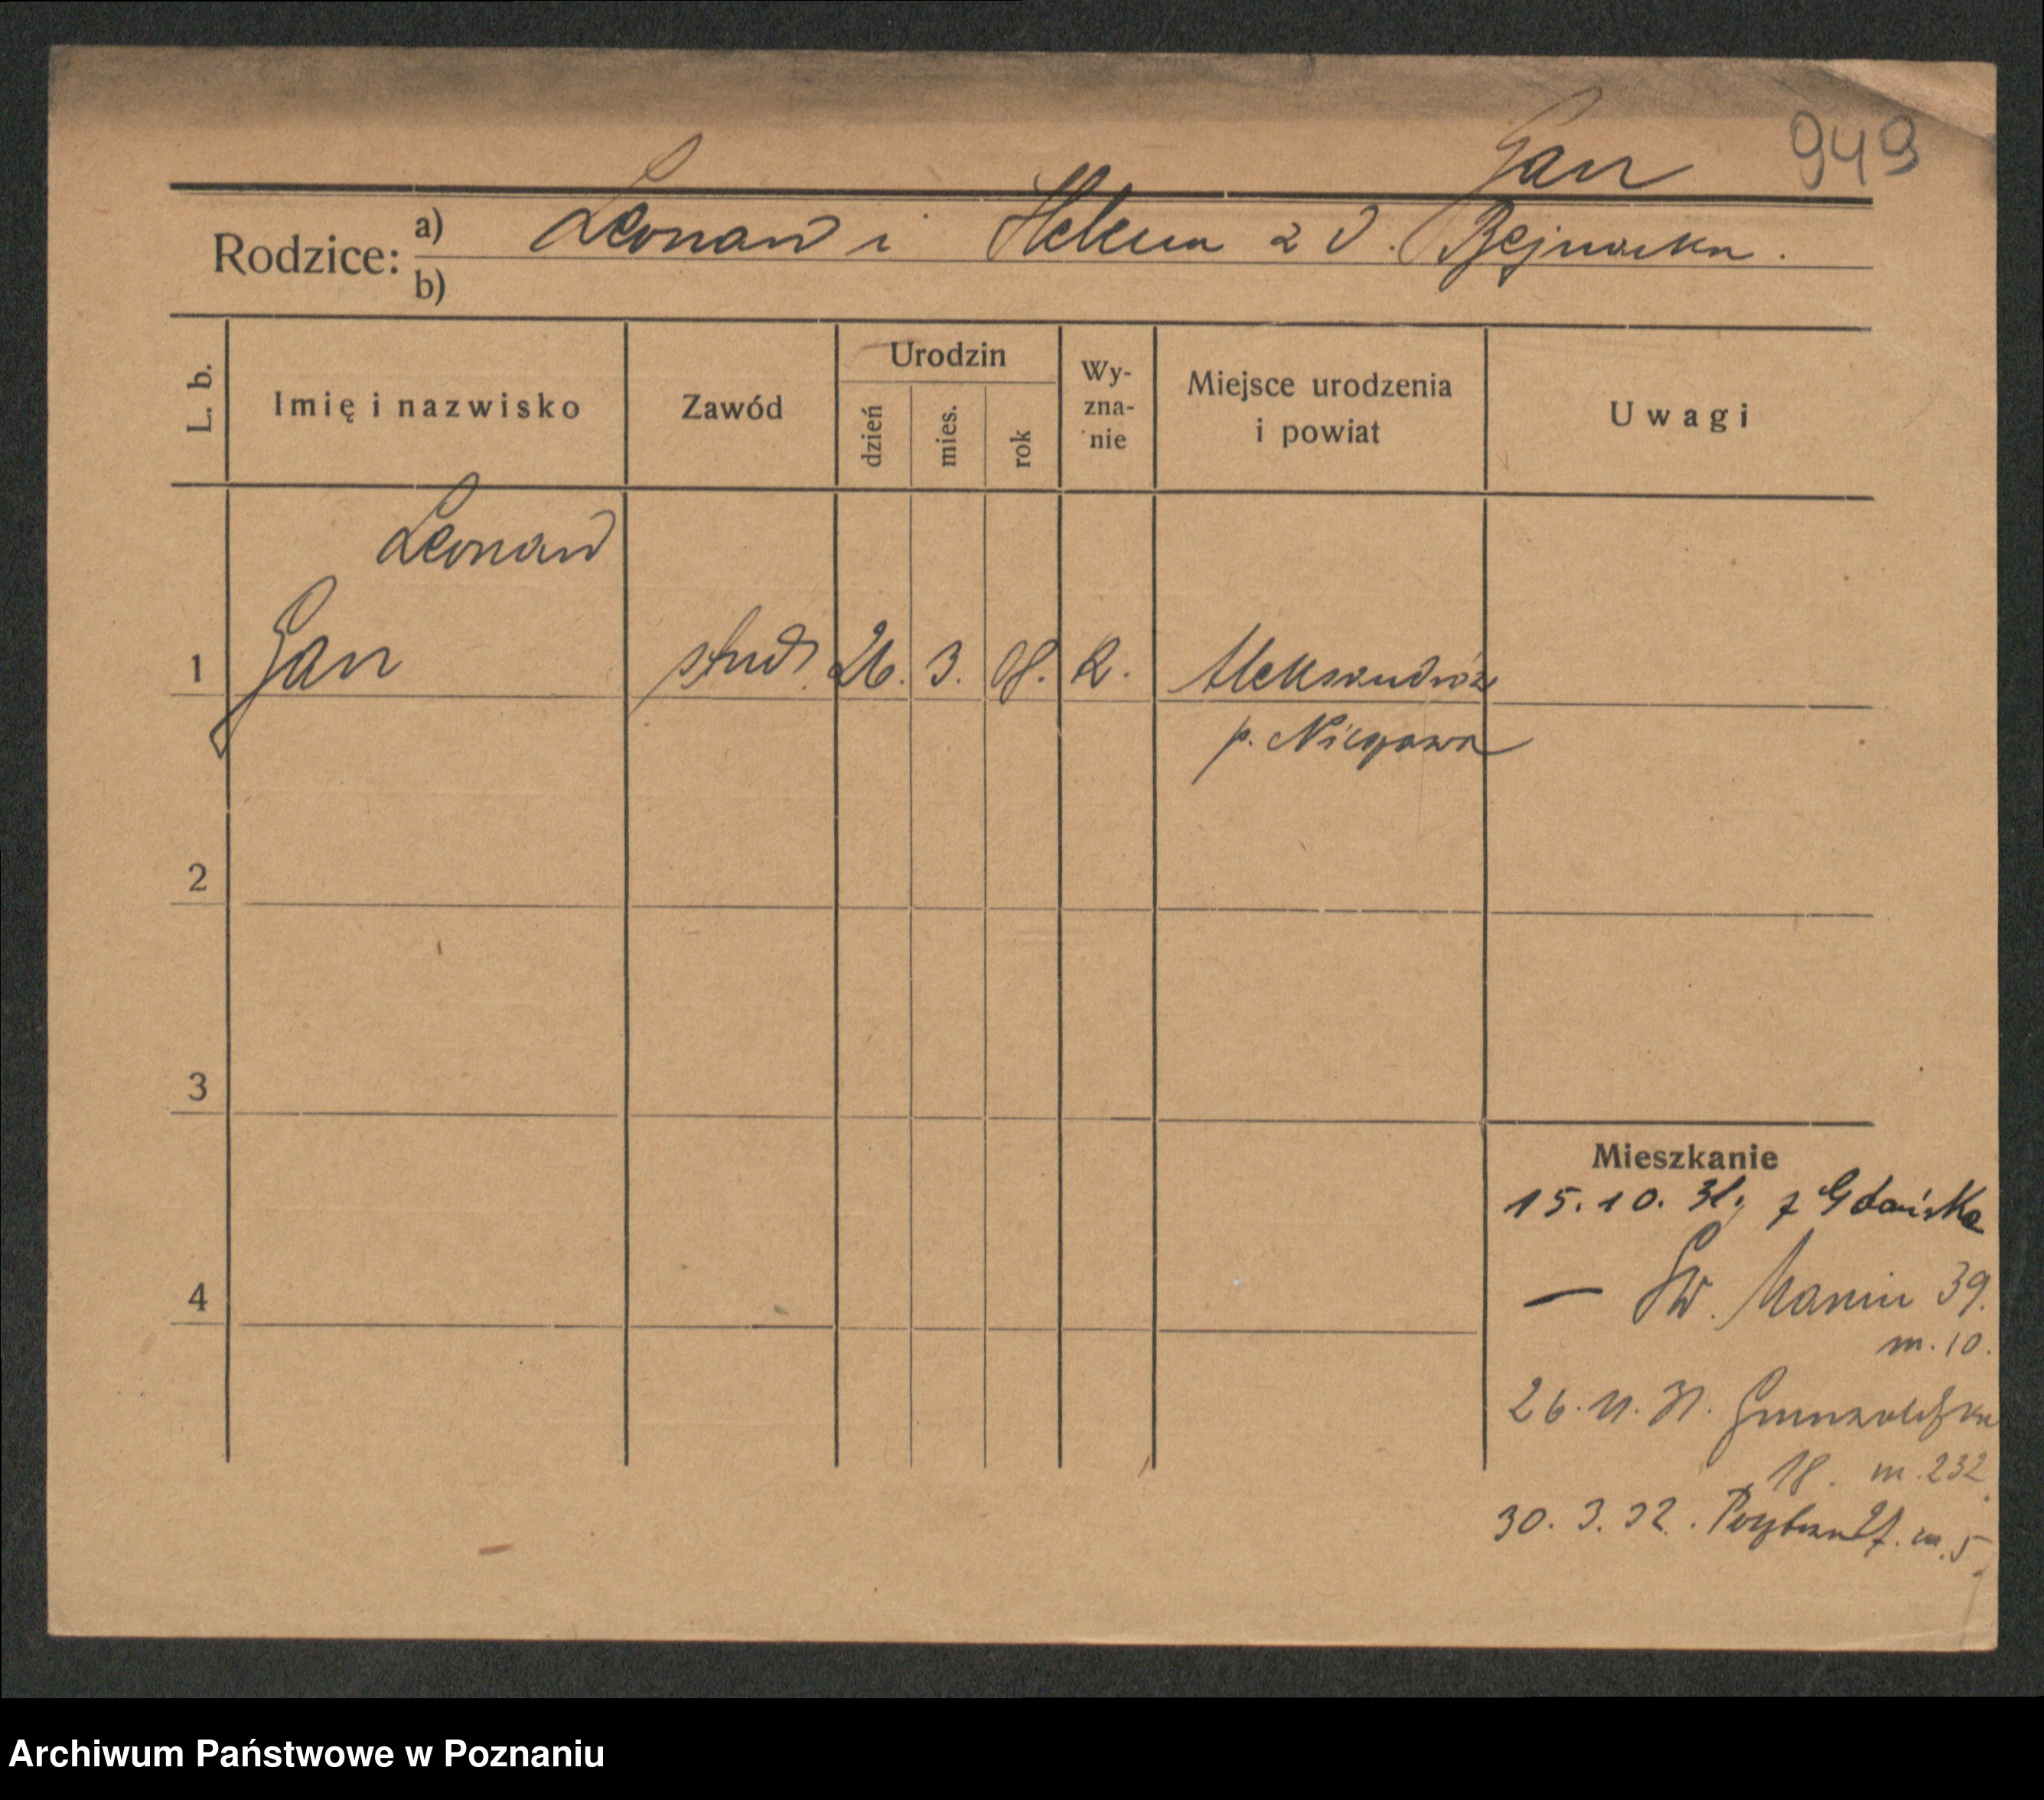 Gan 949
Rodzice: a) Leonard i Helena z d. Bejnarka.
b)
L. b. Imię i nazwisko Zawód Urodzin dzień mies. rok Wy-zna-nie Miejsce urodzenia i powiat Uwagi
Leonard
1 Gan stud. 26. 3. 08. R. Aleksandrów
p. Nieszawa
2
3
Mieszkanie
15.10.31. z Gdańska
4
— Św. Marcin 39.
m. 10.
26. 11. 31. Grunwaldzka
18. m. 232
30. 3. 32. m. 5
Archiwum Państwowe w Poznaniu